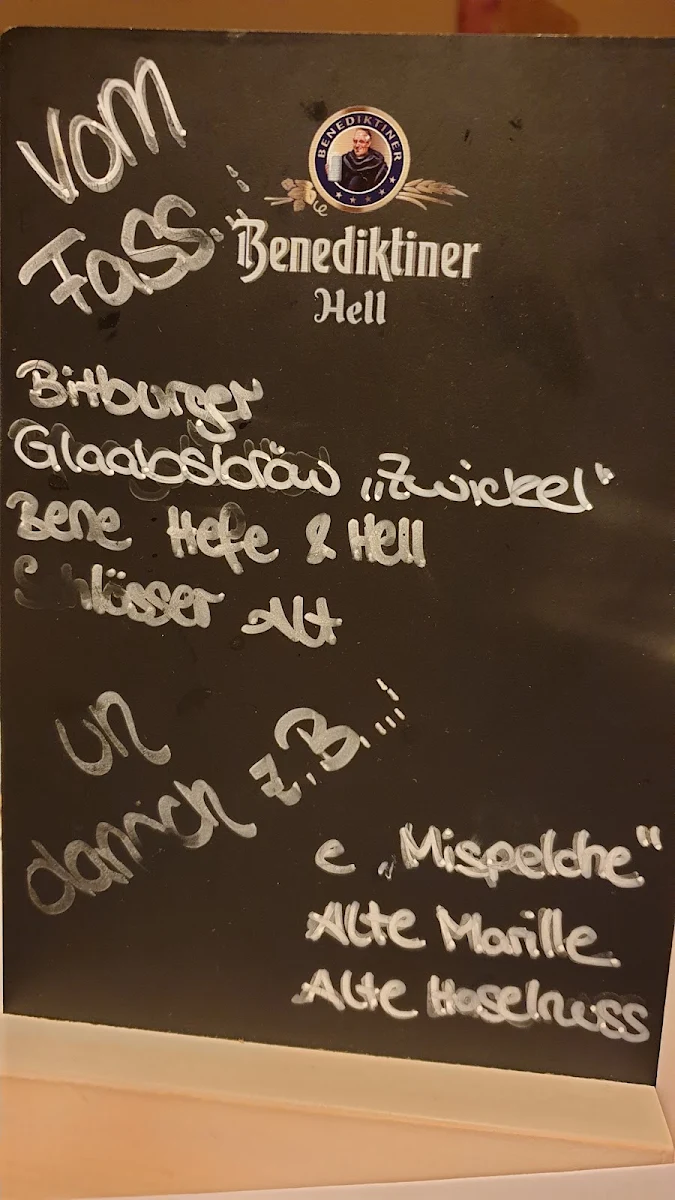 Vom
Fass...!
BENEDIKTINER
Benediktiner
Hell
Bitburger
Glaabsbräu „Zwickel"
Bene Hefe & Hell
Schlösser Alt
un
danich z.B....!
e „Mispelche"
Alte Marille
Alte Haselnuss